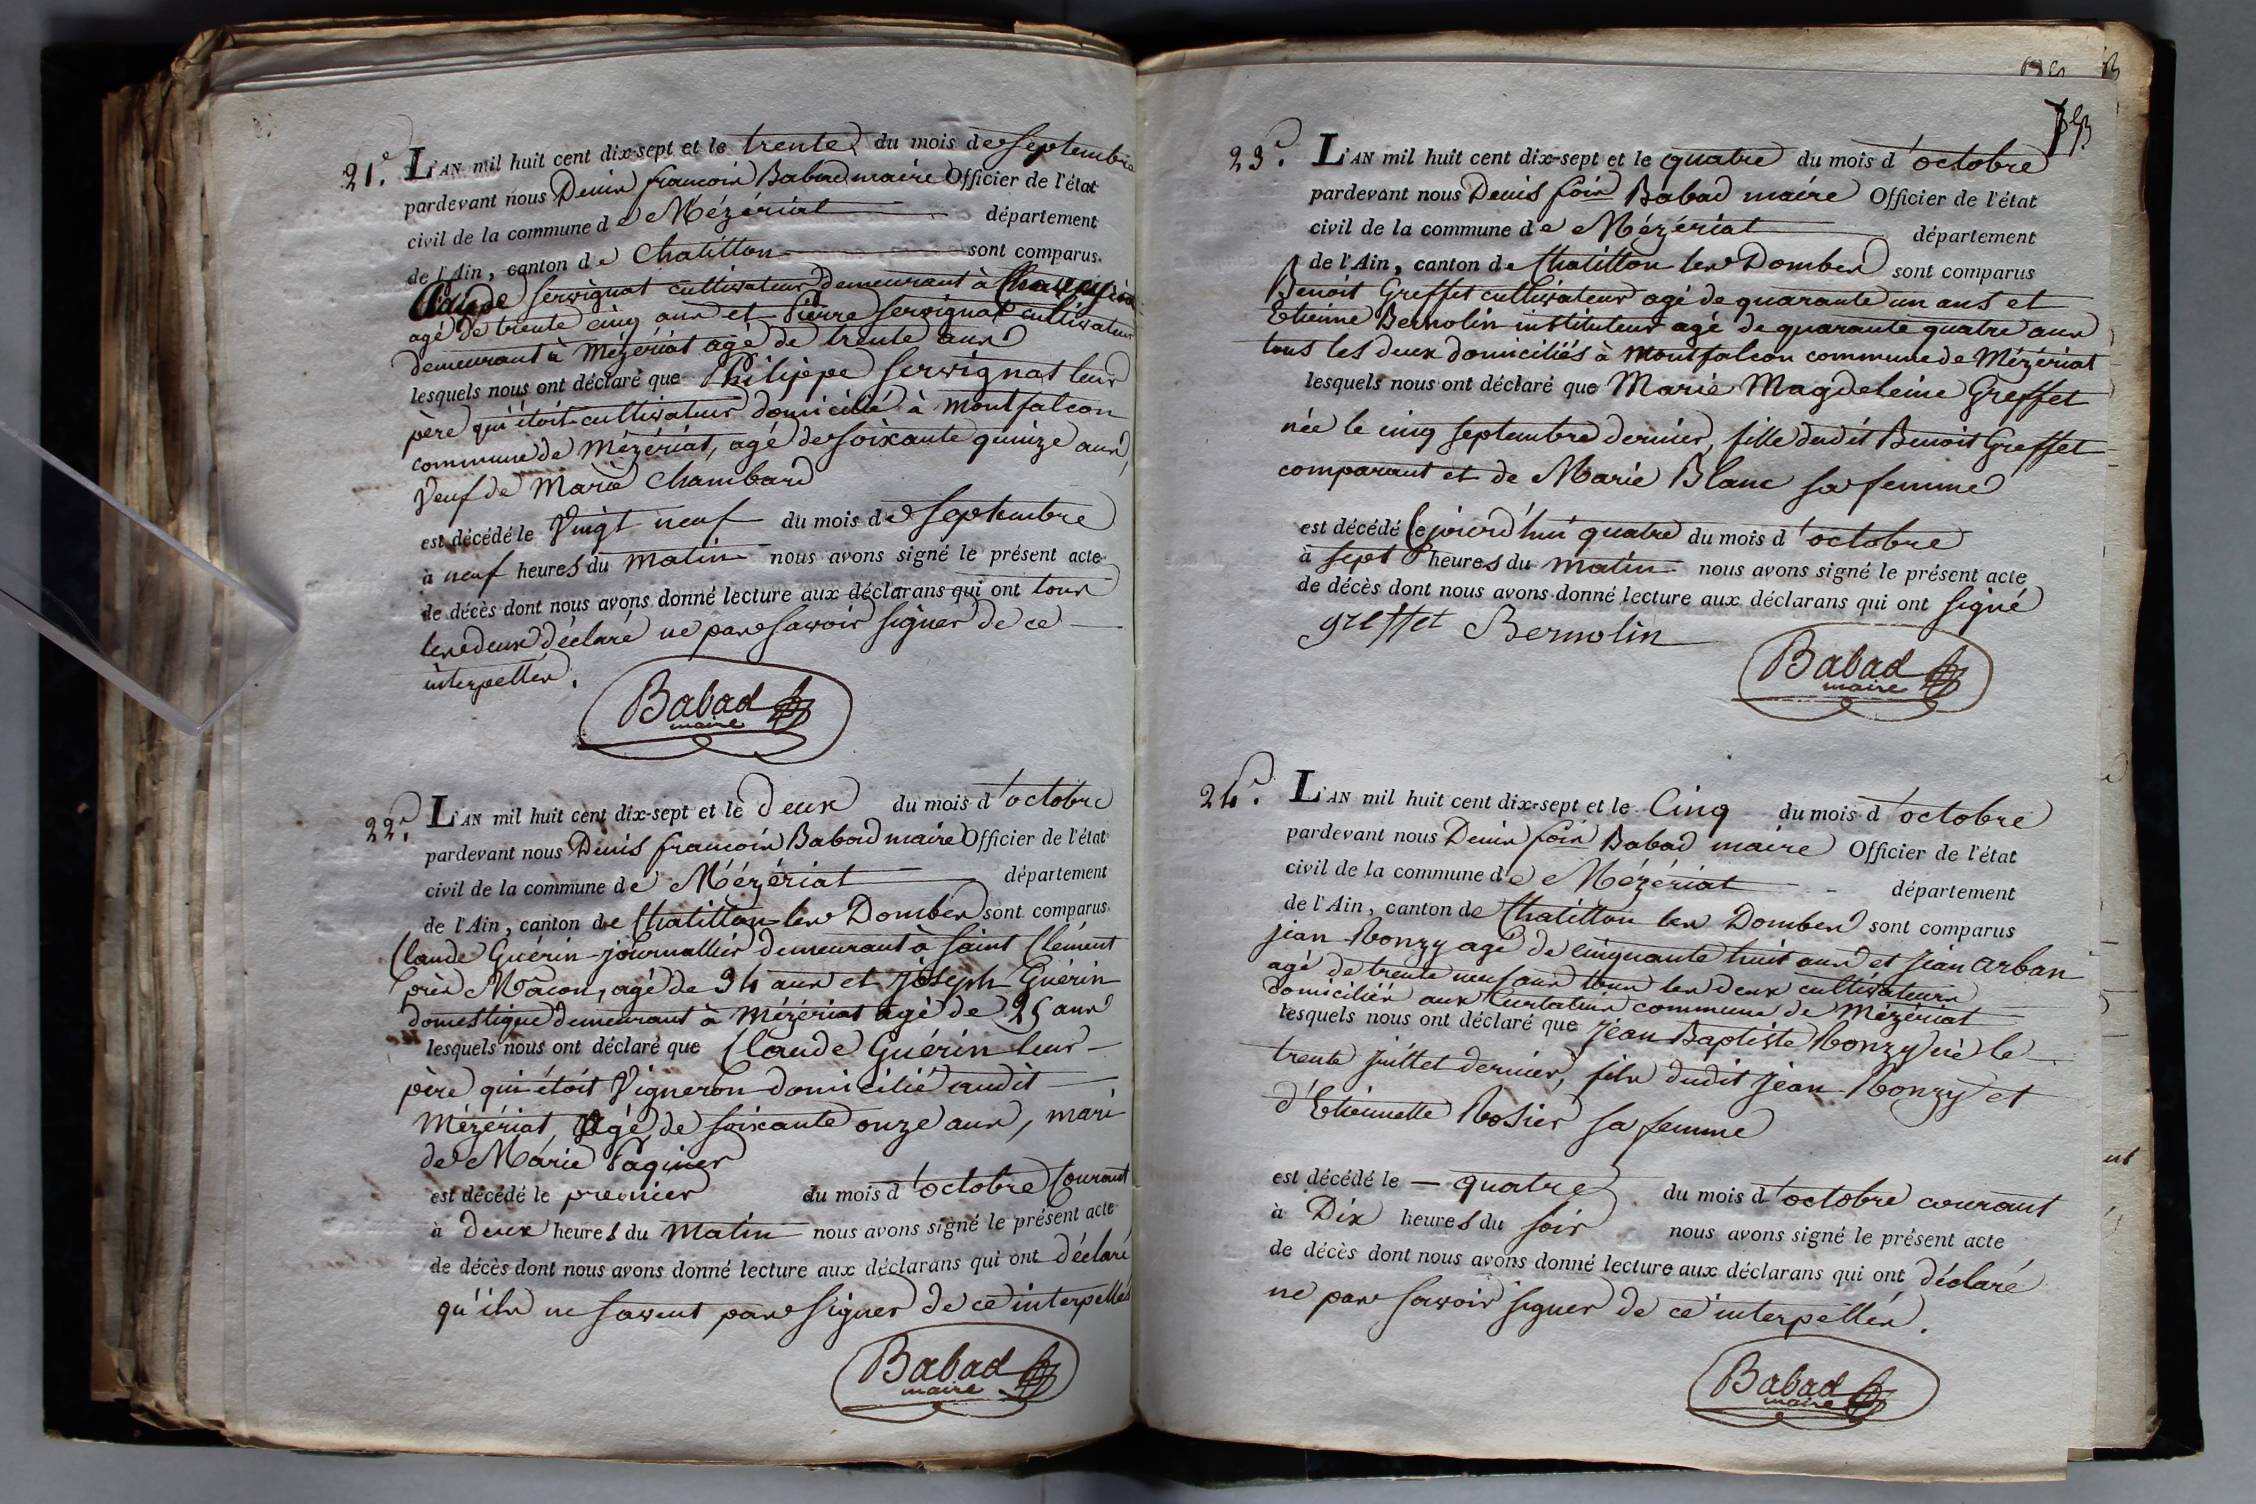 21.e L'AN mil huit cent dix-sept et le trente du mois de Septembre
pardevant nous Denis francois Babad maire Officier de l'état
civil de la commune de Mézériat département
de l'Ain, canton de Chatillon sont comparus
Claude Servignat cultivateur demeurant à
agé de trente cinq ans et Pierre Servignat cultivateur
demeurant à Mézériat agé de trente ans
lesquels nous ont déclaré que Philippe Servignat leur
père qui étoit cultivateur domicilié à Montfalcon
commune de Mézériat, agé de soixante quinze ans,
Veuf de Marie Chambard
est décédé le Vingt neuf du mois de Septembre
à neuf heures du matin nous avons signé le présent acte
de décès dont nous avons donné lecture aux déclarans qui ont tous
les deux déclaré ne pas savoir signer de ce
interpellés.
Babad
maire
22.e L'AN mil huit cent dix-sept et le deux du mois d'octobre
pardevant nous Denis francois Babad maire Officier de l'état
civil de la commune de Mézériat département
de l'Ain, canton de Chatillon les Dombes sont comparus
Claude Guérin journallier demeurant à Saint Clément
près Macon, agé de 34 ans et joseph Guérin
domestique demeurant à Mézériat agé de 25 ans
lesquels nous ont déclaré que Claude Guérin leur
père qui étoit Vigneron domicilié audit
Mézériat Agé de soixante onze ans, mari
de Marie Paginer
est décédé le premier du mois d'octobre Courant
à deux heures du Matin nous avons signé le présent acte
de décès dont nous avons donné lecture aux déclarans qui ont déclaré
qu'ils ne savent pas signer de ce interpellés
Babad
maire
23.e L'AN mil huit cent dix-sept et le quatre du mois d'octobre
pardevant nous Denis fois Babad maire Officier de l'état
civil de la commune de Mézériat département
de l'Ain, canton de Chatillon les Dombes sont comparus
Benoit Greffet cultivateur agé de quarante un ans et
Etienne Bernolin instituteur agé de quarante quatre ans
tous les deux domiciliés à Montfalcon commune de Mézériat
lesquels nous ont déclaré que Marie Magdeleine Greffet
née le cinq septembre dernier, fille dudit Benoit Greffet
comparant et de Marie Blanc sa femme
est décédé Cejourd'hui quatre du mois d'octobre
à sept heures du matin nous avons signé le présent acte
de décès dont nous avons donné lecture aux déclarans qui ont signé
greffet Bernolin
Babad
maire
24.e L'AN mil huit cent dix-sept et le Cinq du mois d'octobre
pardevant nous Denis fois Babad maire Officier de l'état
civil de la commune de Mézériat département
de l'Ain, canton de Chatillon les Dombes sont comparus
jean Ronzy agé de cinquante huit ans et Jean Arban
agé de trente neuf ans tous les deux cultivateurs
domiciliés aux Curtatins commune de Mézériat
lesquels nous ont déclaré que Jean Baptiste Ronzy né le
trente Juillet dernier, fils dudit Jean Ronzy et
d'Etiennette Rosier sa femme
est décédé le quatre du mois d'octobre courant
à Dix heures du soir nous avons signé le présent acte
de décès dont nous avons donné lecture aux déclarans qui ont déclaré
ne pas savoir signer de ce interpellés.
Babad
maire